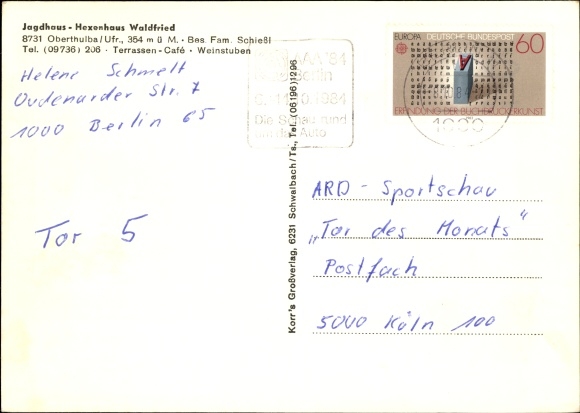 Jagdhaus - Hexenhaus Waldfried
8731 Oberthulba/Ufr., 354 m ü M. • Bes. Fam. Schießl
Tel. (09736) 206 · Terrassen-Café · Weinstuben
Helene Schmelt
Oudenarder Str. 7
1000 Berlin 65
Tor 5
AAA '84
Berlin
1984
Die Schau rund
um das Auto
EUROPA DEUTSCHE BUNDESPOST 60
ERFINDUNG DER BUCHDRUCKERKUNST
1000
Korr's Großverlag, 6231 Schwalbach/Ts., Tel. (06196) 1296
ARD - Sportschau
„Tor des Monats“
Postfach
5000 Köln 100